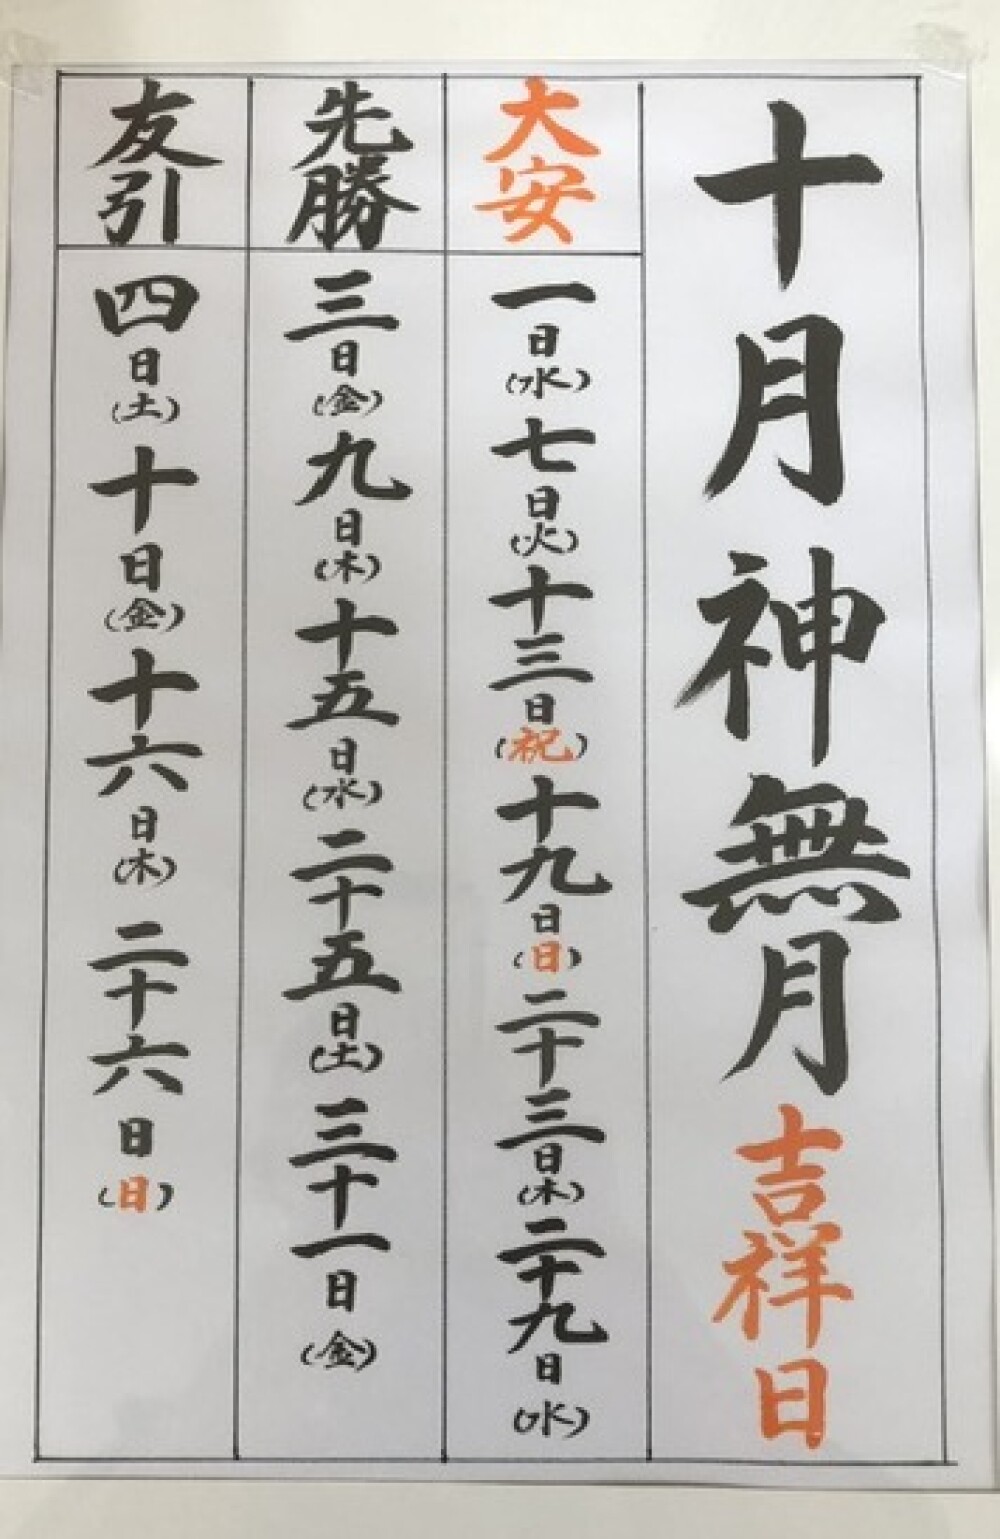 十月神無月吉祥日
大安
一日(水)七日(火)十三日(祝)十九日(日)二十三日(木)二十九日(水)
先勝
三日(金)九日(木)十五日(水)二十五日(土)三十一日(金)
友引
四日(土)十日(金)十六日(木)二十六日(日)